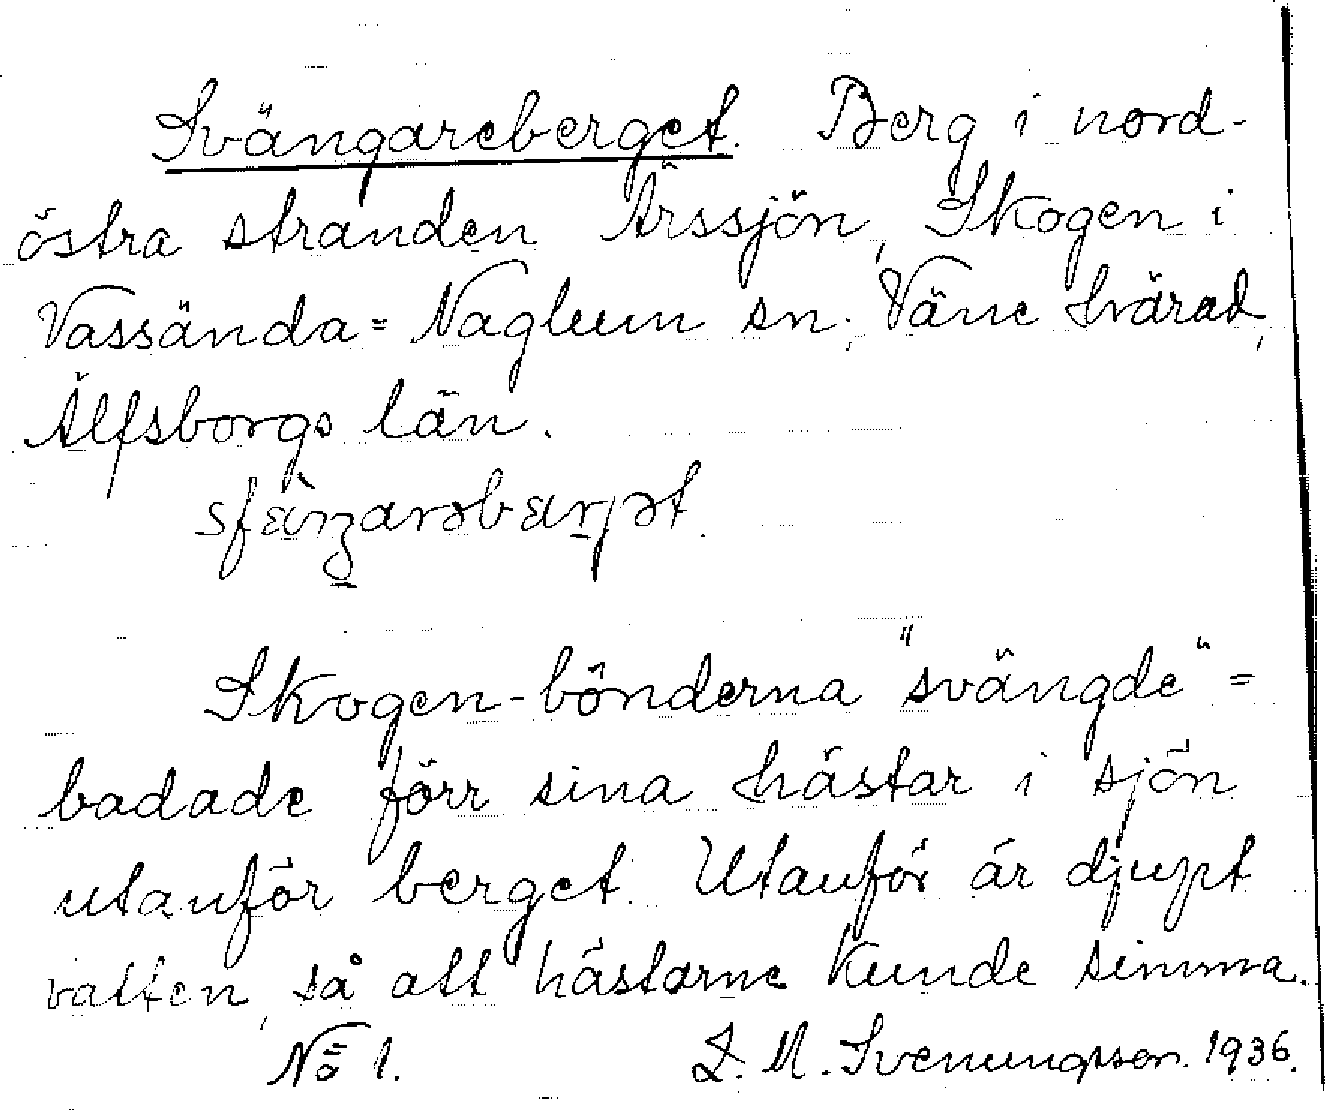 Svängareberget. Berg i nord-
östra stranden Ärssjön, Skogen i
Vassända-Naglum sn. Väne härad,
Älfsborgs län.
Skogen-bönderna "svängde" =
badade förr sina hästar i sjön
utanför berget. Utanför är djupt
vatten, så att hästarne kunde simma.
No 1. L. M. Svenungsson. 1936.